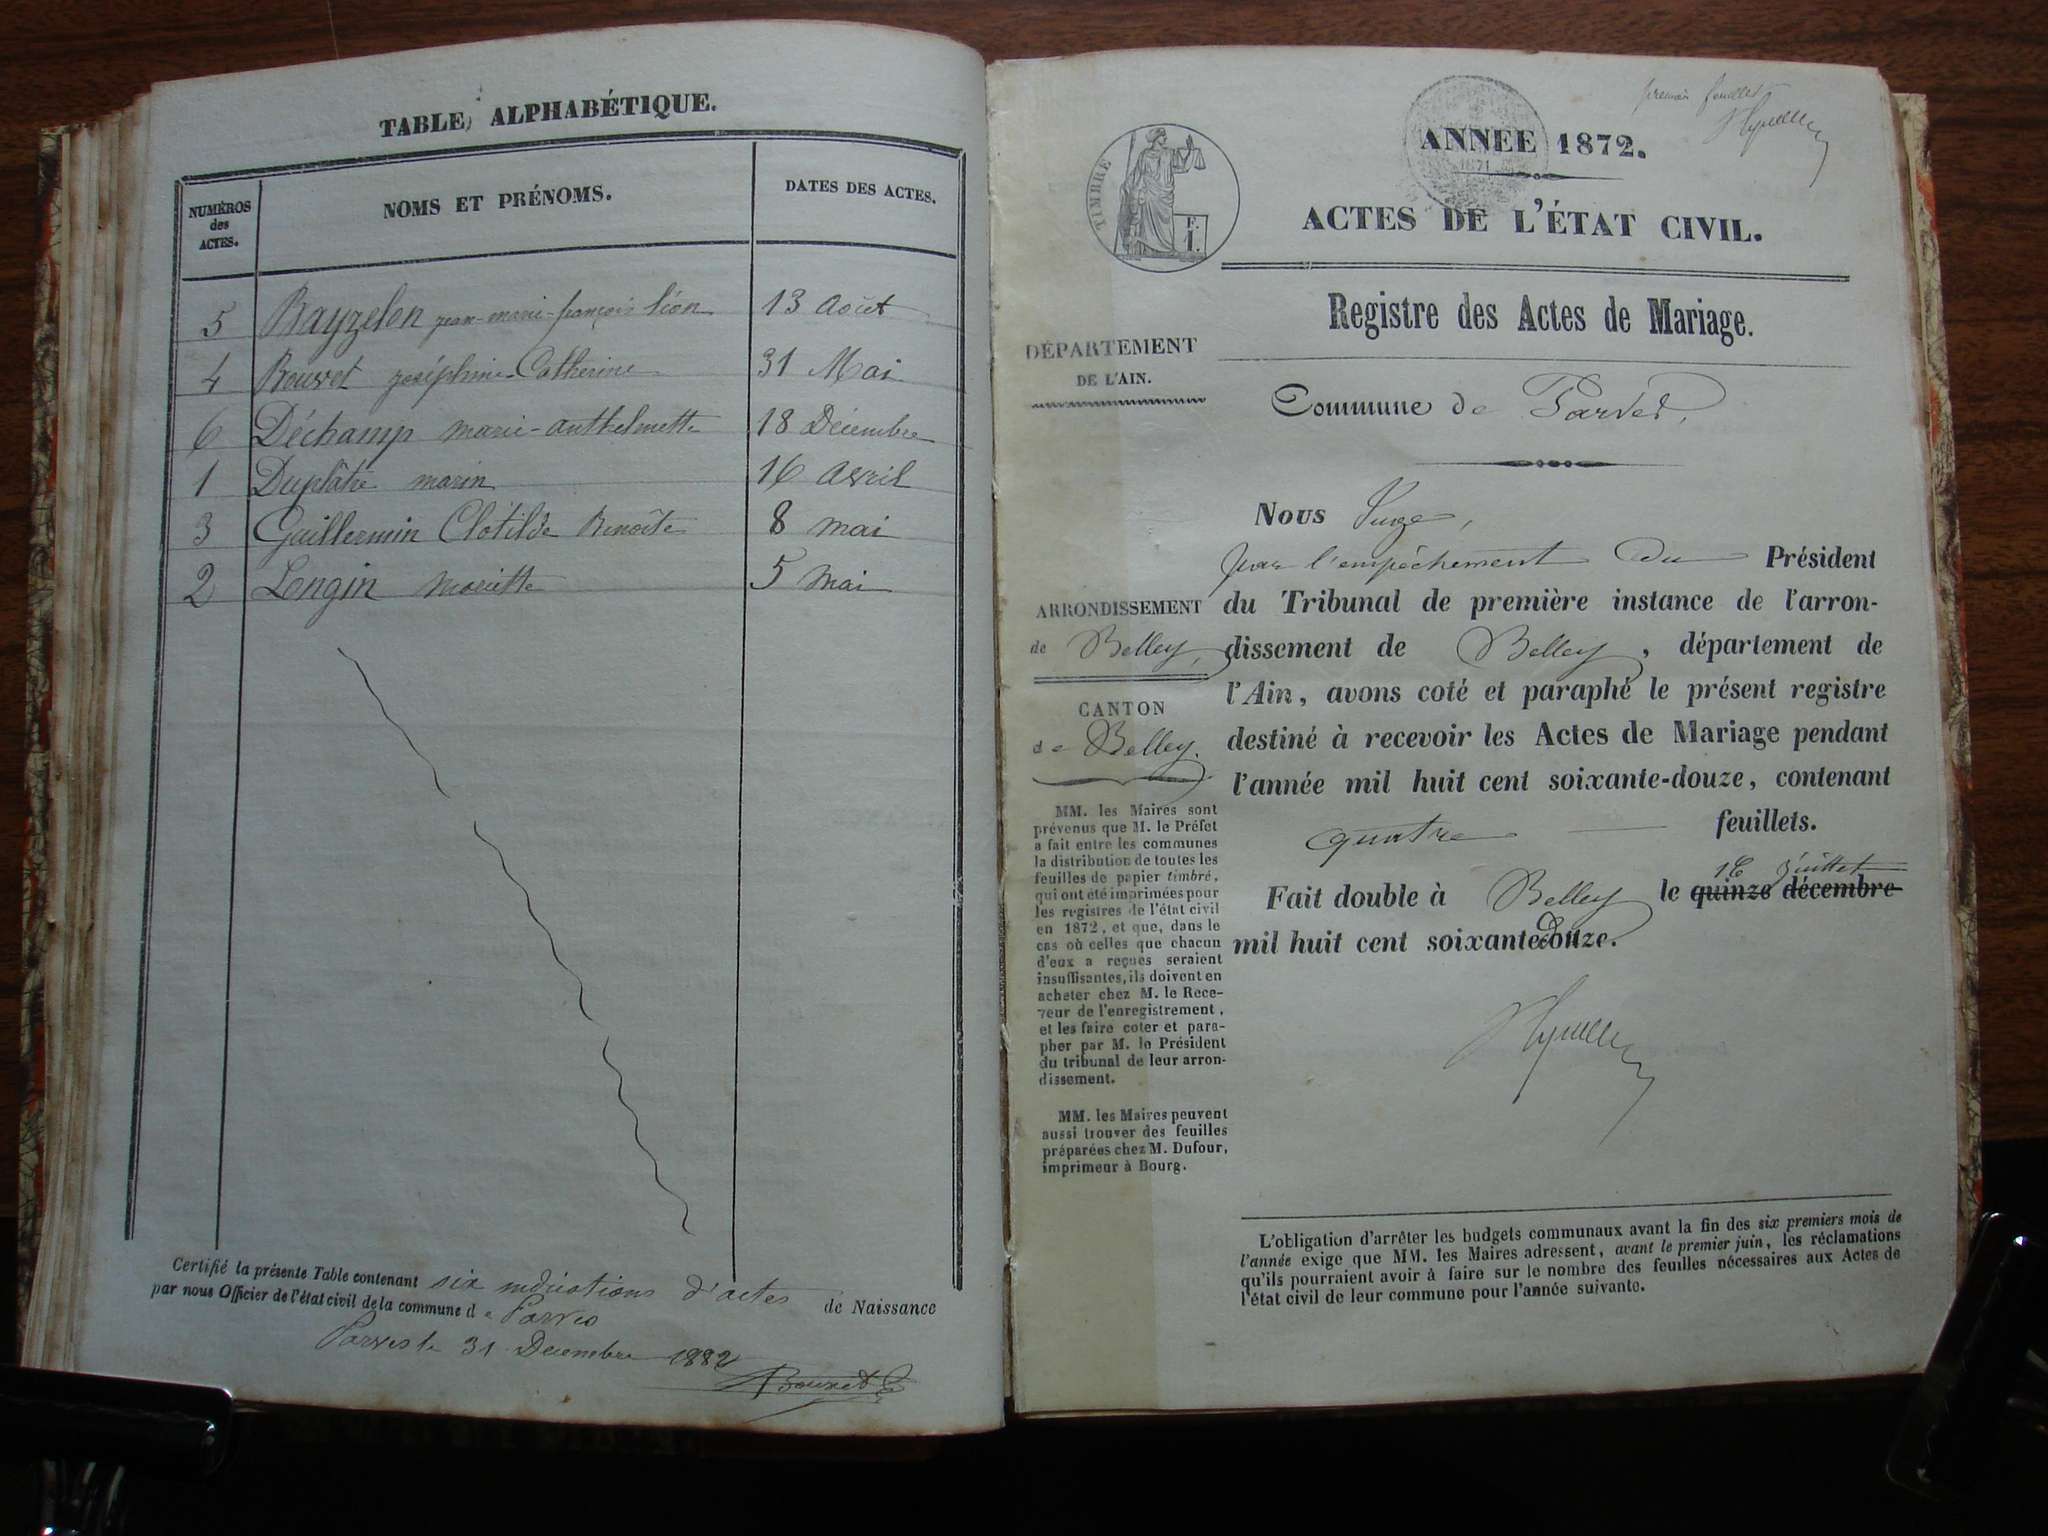 TABLE ALPHABÉTIQUE.
NUMÉROS des ACTES.
NOMS ET PRÉNOMS.
DATES DES ACTES.
5 Bayzelon jean-marie-françois léon 13 Août
4 Bouvet joséphine-Catherine 31 Mai
6 Déchamp marie-anthelmette 18 Décembre
1 Duplâtre marin 16 avril
3 Guillermin Clotilde Benoîte 8 mai
2 Longin mariette 5 mai
Certifié la présente Table contenant six indications d'actes de Naissance
par nous Officier de l'état civil de la commune de Parves
Parves le 31 Décembre 1882
Bouvet
premier feuillet
TIMBRE
F.
1.
1871
ANNÉE 1872.
ACTES DE L'ÉTAT CIVIL.
Registre des Actes de Mariage.
DÉPARTEMENT
DE L'AIN.
Commune de Parves,
Nous Juge,
par l'empêchement du Président
du Tribunal de première instance de l'arron-
dissement de Belley, département de
l'Ain, avons coté et paraphé le présent registre
destiné à recevoir les Actes de Mariage pendant
l'année mil huit cent soixante-douze, contenant
quatre feuillets.
16 juillet
Fait double à Belley le quinze décembre
mil huit cent soixante douze.
ARRONDISSEMENT
de Belley,
CANTON
de Belley.
MM. les Maires sont
prévenus que M. le Préfet
a fait entre les communes
la distribution de toutes les
feuilles de papier timbré,
qui ont été imprimées pour
les registres de l'état civil
en 1872, et que, dans le
cas où celles que chacun
d'eux a reçues seraient
insuffisantes, ils doivent en
acheter chez M. le Rece-
veur de l'enregistrement,
et les faire coter et para-
pher par M. le Président
du tribunal de leur arron-
dissement.
MM. les Maires peuvent
aussi trouver des feuilles
préparées chez M. Dufour,
imprimeur à Bourg.
L'obligation d'arrêter les budgets communaux avant la fin des six premiers mois de
l'année exige que MM. les Maires adressent, avant le premier juin, les réclamations
qu'ils pourraient avoir à faire sur le nombre des feuilles nécessaires aux Actes de
l'état civil de leur commune pour l'année suivante.